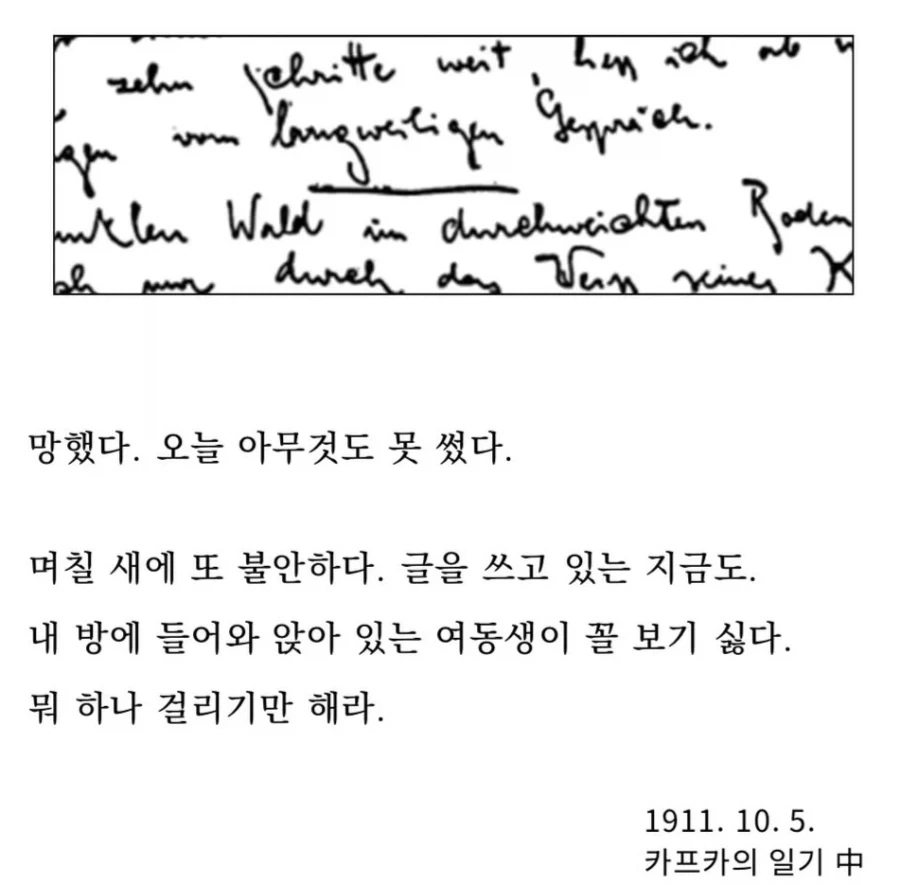 zehn Schritte weit, hen ich ab
gen vom langweiligen Gespräch.
unklen Wald im durchweichten Boden
ich nur durch das Weiß seines K
망했다. 오늘 아무것도 못 썼다.
며칠 새에 또 불안하다. 글을 쓰고 있는 지금도.
내 방에 들어와 앉아 있는 여동생이 꼴 보기 싫다.
뭐 하나 걸리기만 해라.
1911. 10. 5.
카프카의 일기 中